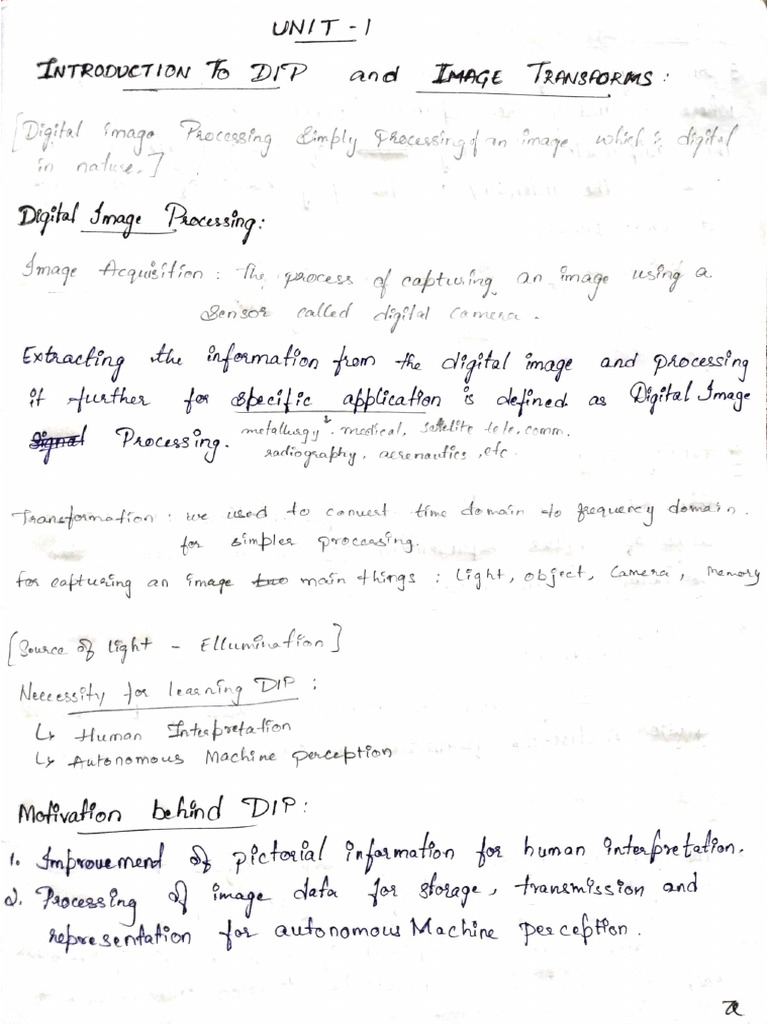 UNIT - 1
INTRODUCTION TO DIP and IMAGE TRANSFORMS :
[Digital image Processing Simply Processing of an image, which is digital
in nature.]
Digital Image Processing:
Image Acquisition : The process of capturing an image using a
Sensor called digital camera.
Extracting the information from the digital image and processing
it further for specific application is defined as Digital Image
Signal Processing. metallurgy, medical, satellite tele.comm.
radiography, aeronautics, etc.
Transformation : we used to convert time domain to frequency domain.
for simpler processing.
For capturing an image two main things : Light, object, Camera, Memory
[Source of light - Ellumination]
Neccessity for learning DIP :
↳ Human Interpretation
↳ Autonomous Machine perception
Motivation behind DIP:
1. Improvemend of pictorial information for human interpretation.
2. Processing of image data for storage, transmission and
representation for autonomous Machine perception.